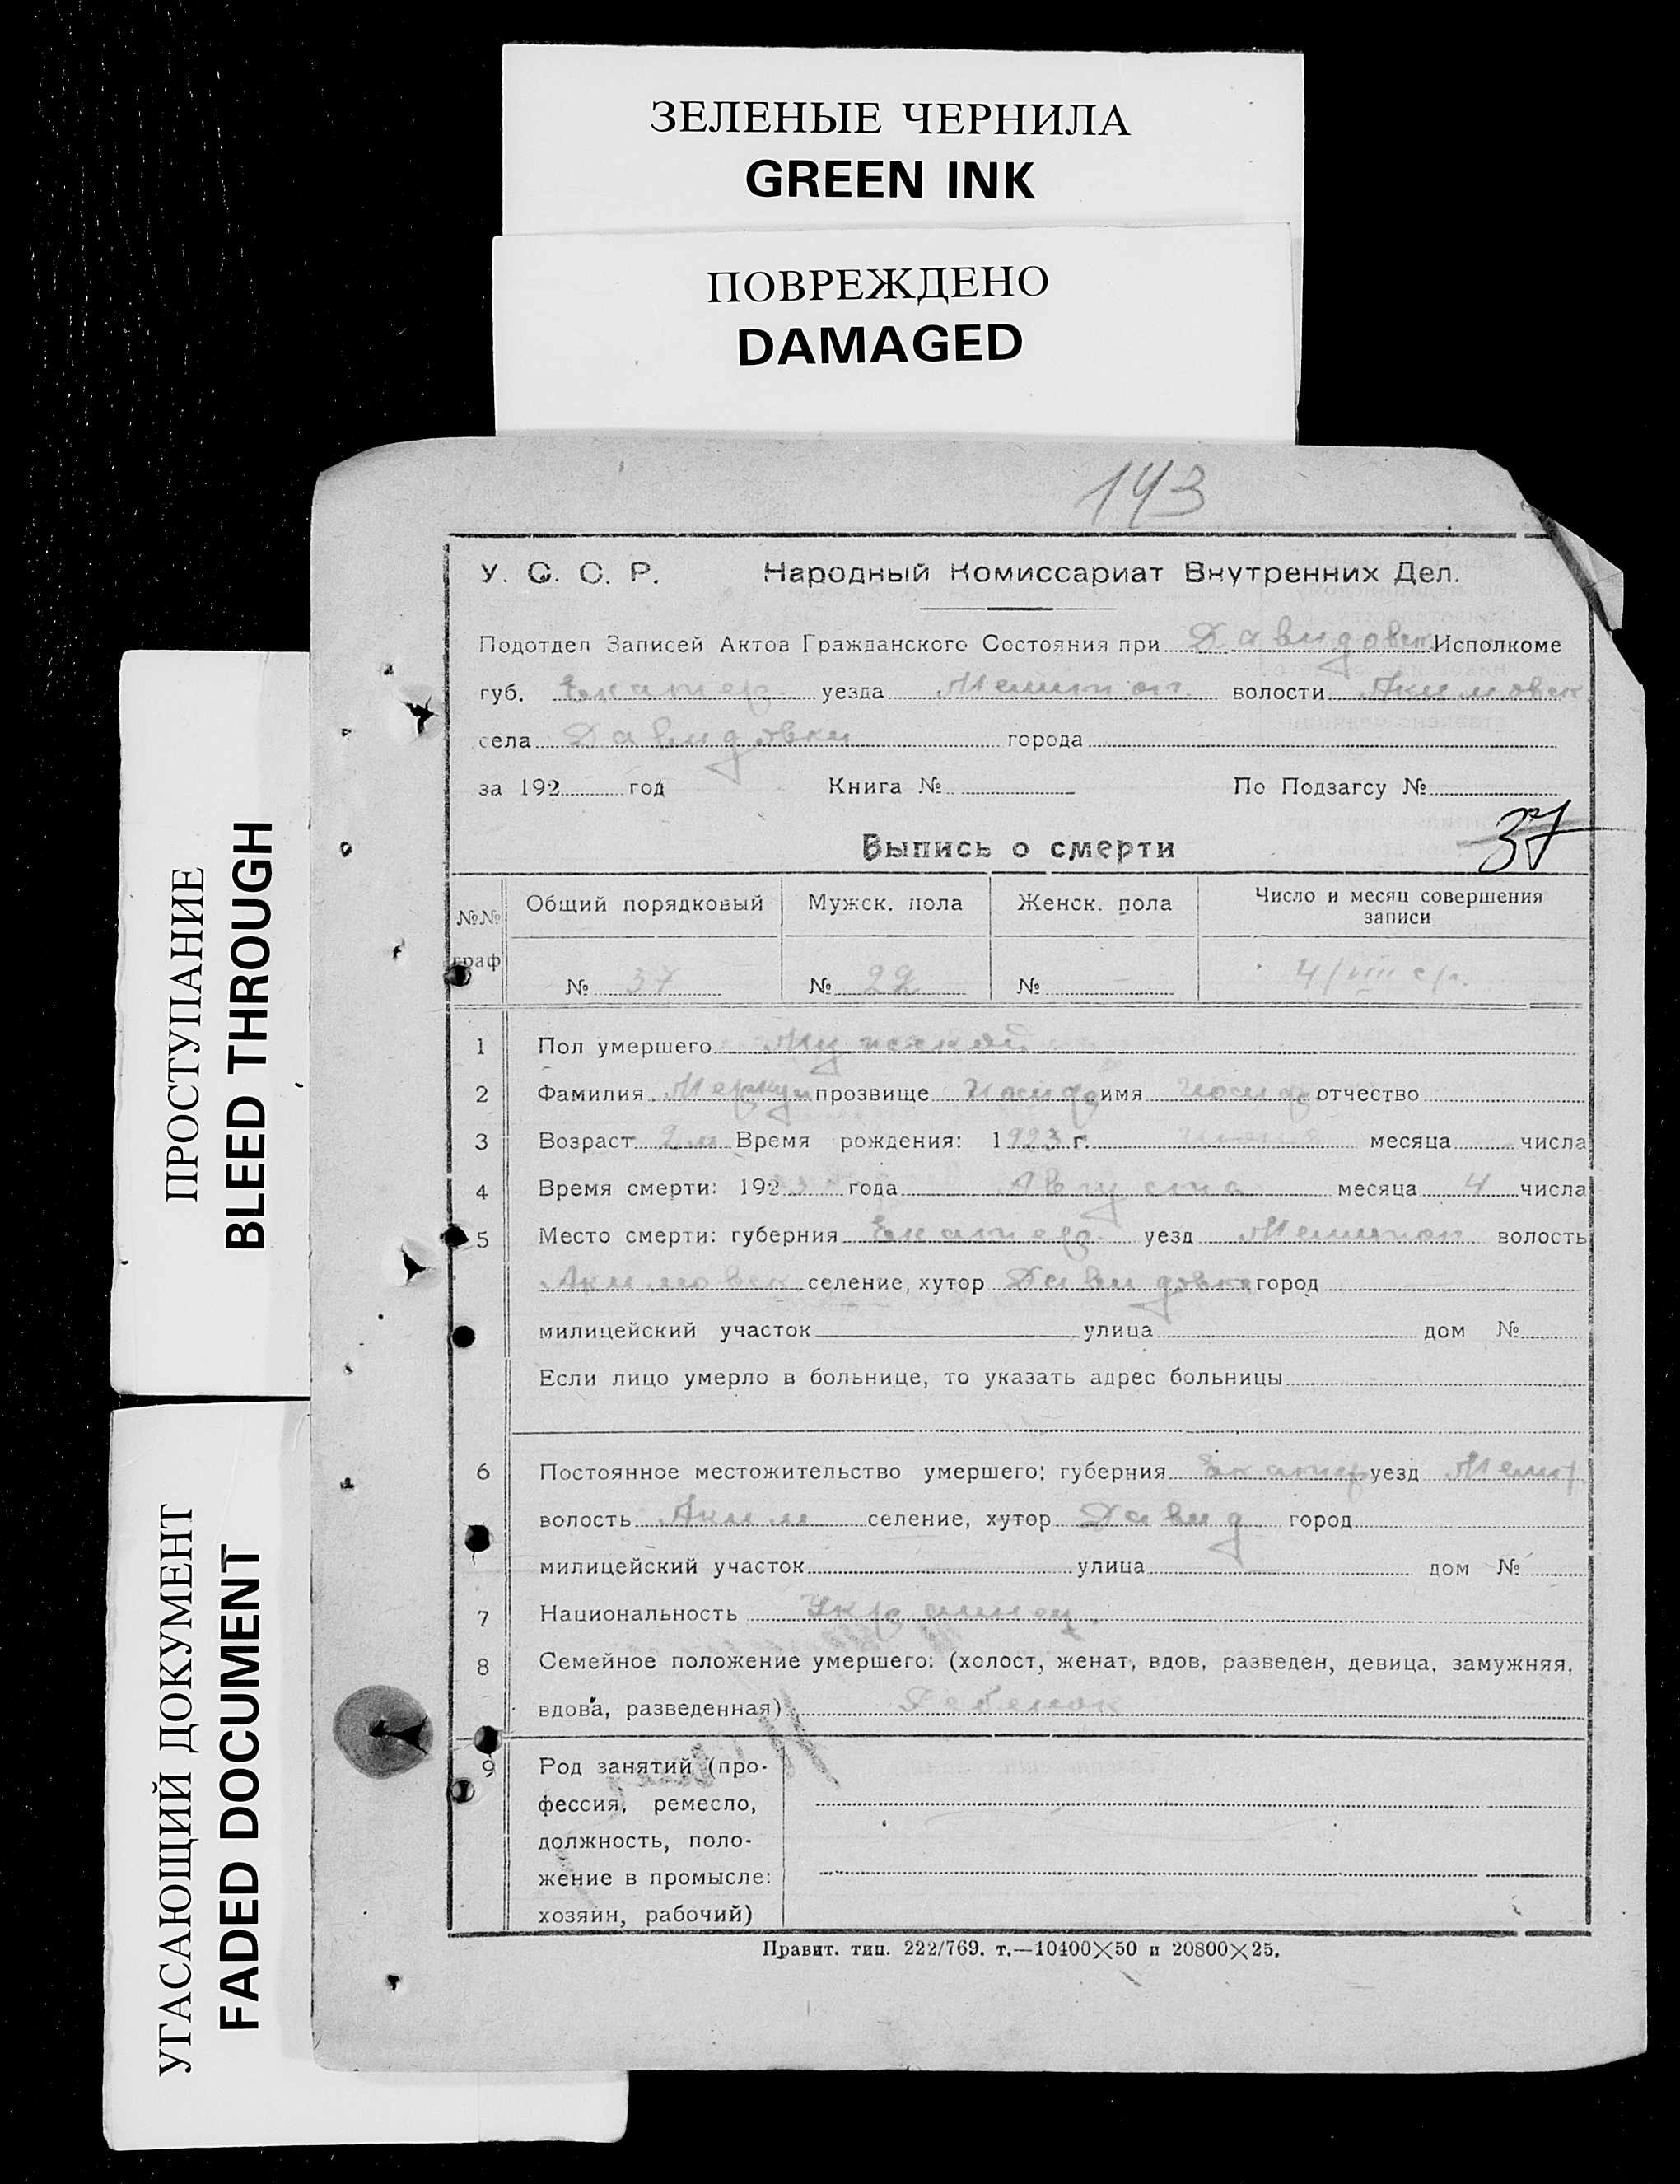 ЗЕЛЕНЫЕ ЧЕРНИЛА
GREEN INK
ПОВРЕЖДЕНО
DAMAGED
ПРОСТУПАНИЕ
BLEED THROUGH
УГАСАЮЩИЙ ДОКУМЕНТ
FADED DOCUMENT
143
У. С. С. Р. Народный Комиссариат Внутренних Дел.
Подотдел Записей Актов Гражданского Состояния при Давидовск Исполкоме
губ. Екатер. уезда Мелитоп. волости Акимовск
села Давидовки города
за 192 год Книга № По Подзагсу №
37
Выпись о смерти
№№ граф Общий порядковый Мужск. пола Женск. пола Число и месяц совершения записи
№ 37 № 22 № - 4/VIII с/г.
1 Пол умершего Мужской
2 Фамилия прозвище имя отчество
3 Возраст 2 м Время рождения: 1923 г. месяца числа
4 Время смерти: 192 года Августа месяца 4 числа
5 Место смерти: губерния Екатер. уезд Мелитоп волость
Акимовск селение, хутор Давидовка город
милицейский участок улица дом №
Если лицо умерло в больнице, то указать адрес больницы
6 Постоянное местожительство умершего: губерния Екатер уезд Мелит
волость Аким селение, хутор Давид город
милицейский участок улица дом №
7 Национальность Украинец.
8 Семейное положение умершего: (холост, женат, вдов, разведен, девица, замужняя,
вдова, разведенная) Ребенок
9 Род занятий (про-
фессия, ремесло,
должность, поло-
жение в промысле:
хозяин, рабочий)
Правит. тип. 222/769. т.—10400×50 и 20800×25.